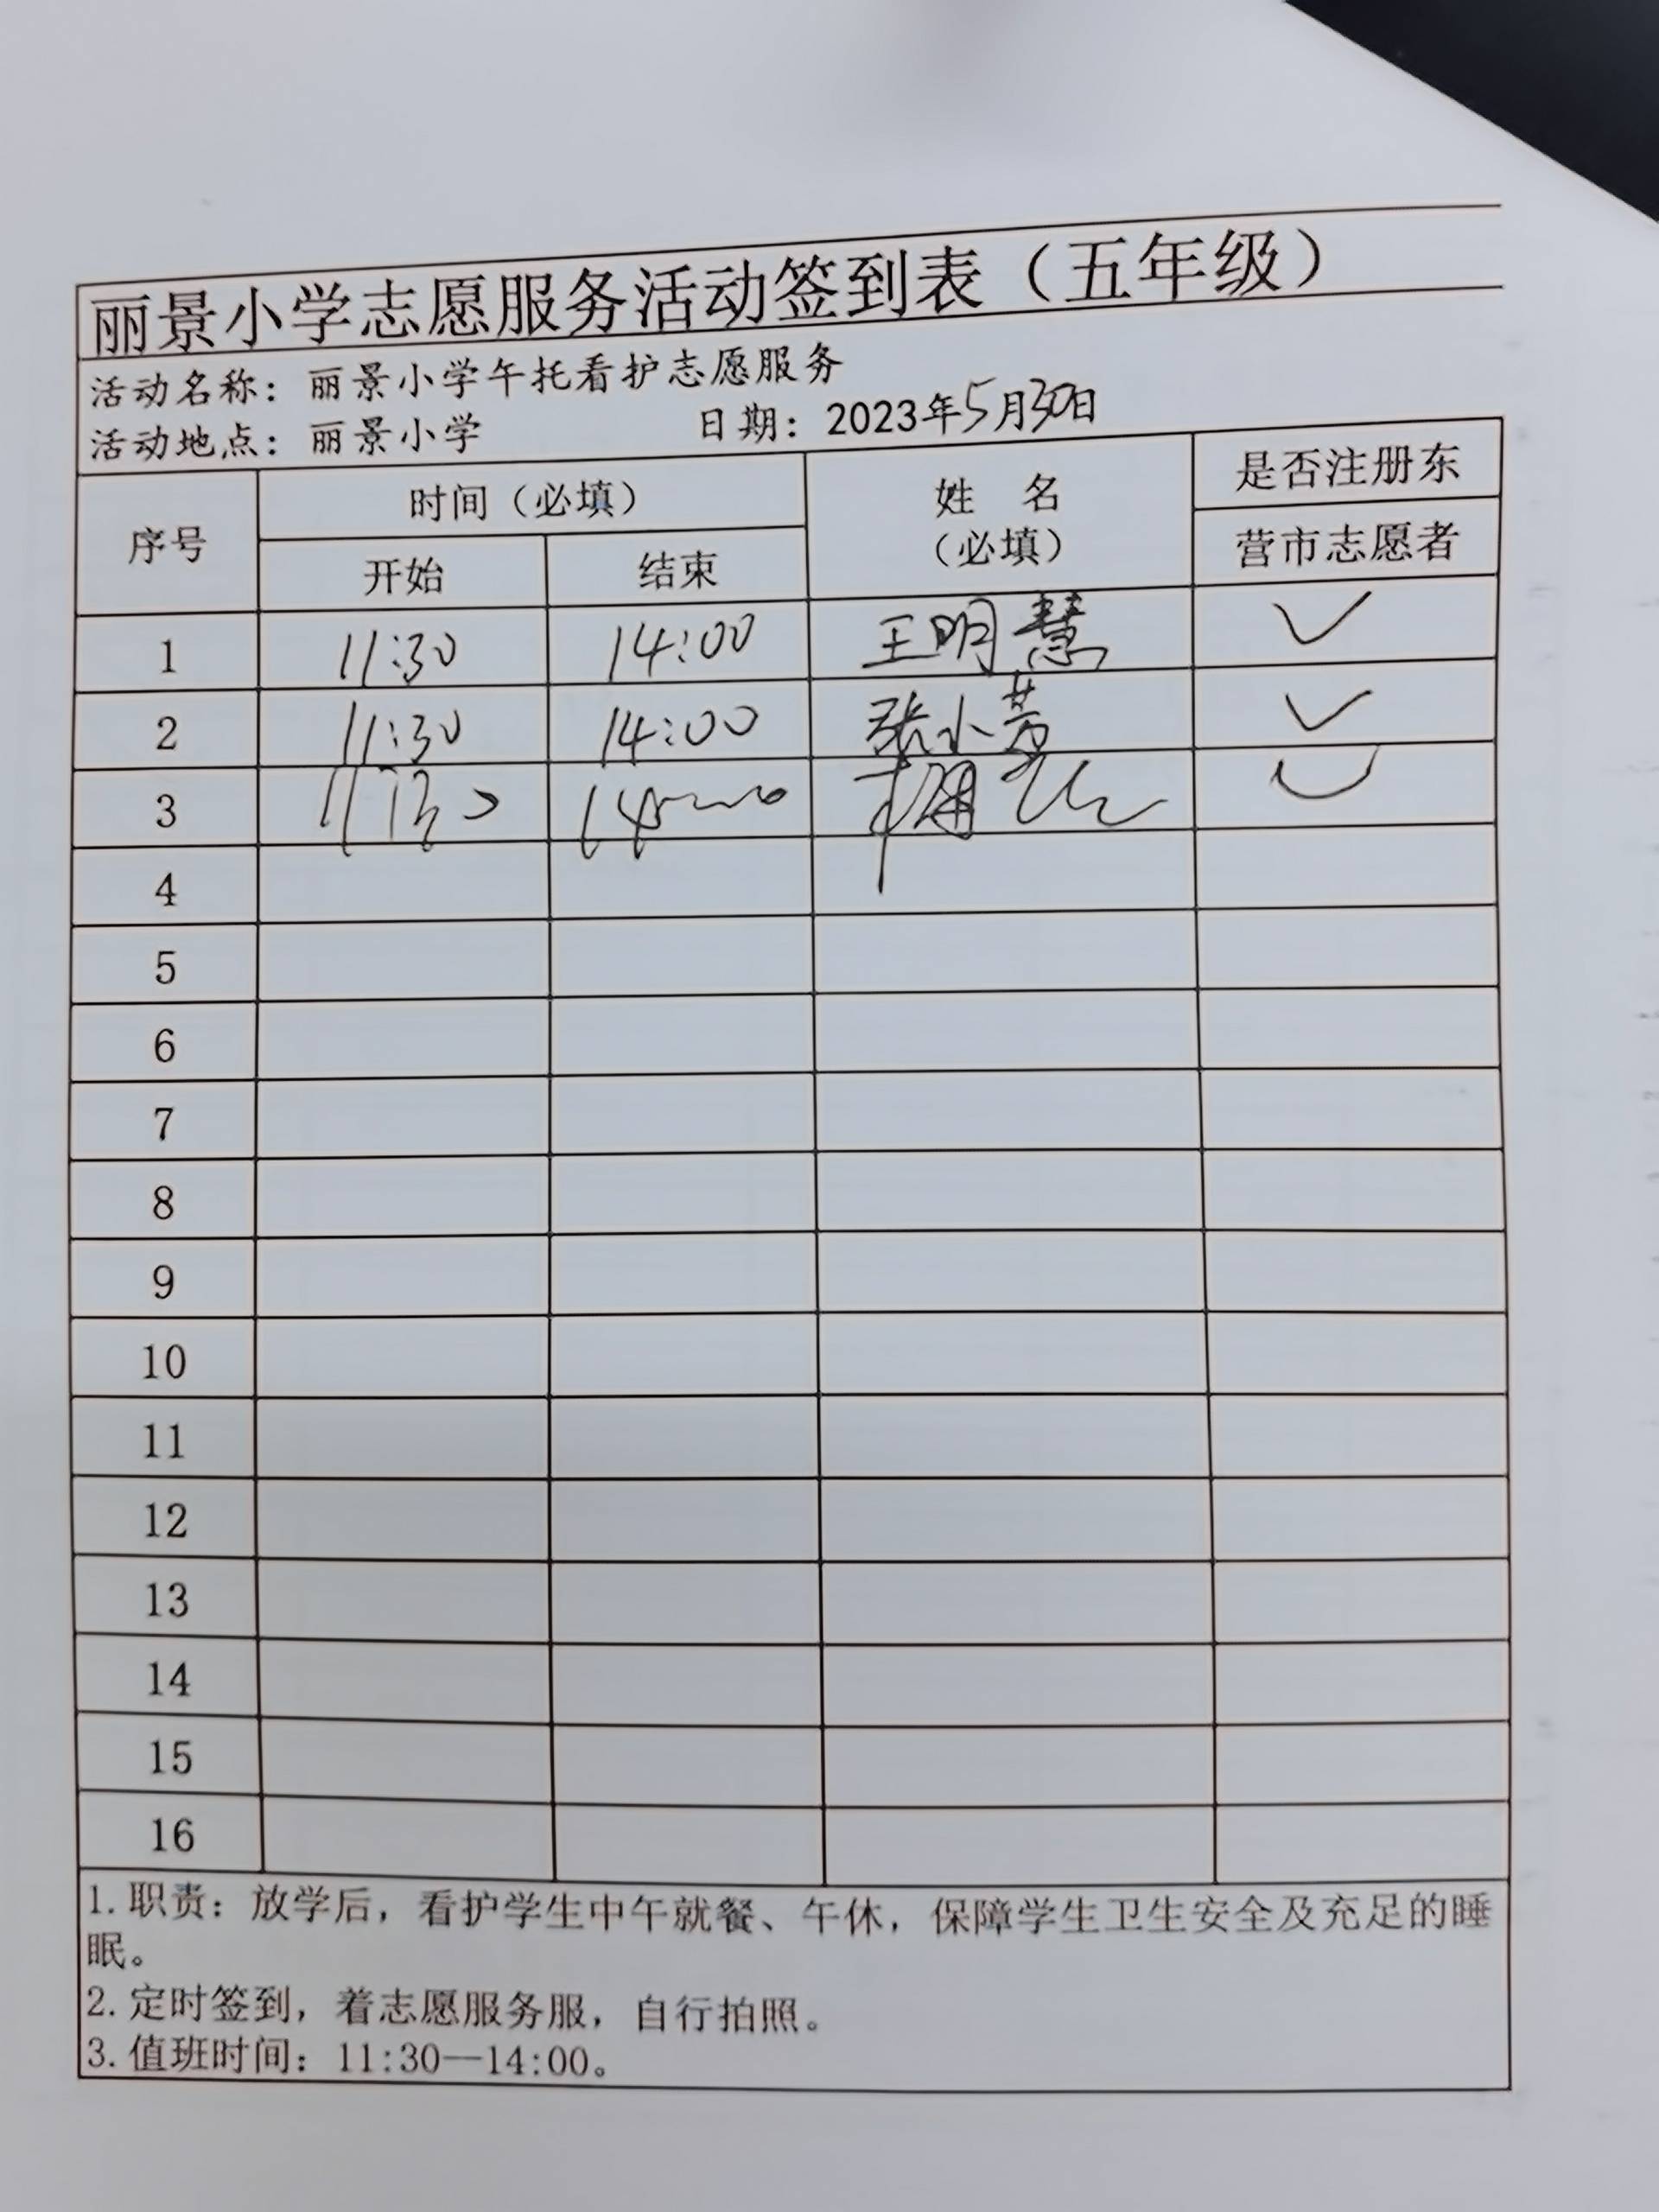 丽景小学志愿服务活动签到表（五年级）
活动名称：丽景小学午托看护志愿服务
活动地点：丽景小学 日期：2023年5月30日
序号 时间（必填） 姓 名（必填） 是否注册东营市志愿者
开始 结束
1 11:30 14:00 王明慧 ✓
2 11:30 14:00 张小芳 ✓
3 ✓
4
5
6
7
8
9
10
11
12
13
14
15
16
1.职责：放学后，看护学生中午就餐、午休，保障学生卫生安全及充足的睡
眠。
2.定时签到，着志愿服务服，自行拍照。
3.值班时间：11:30—14:00。